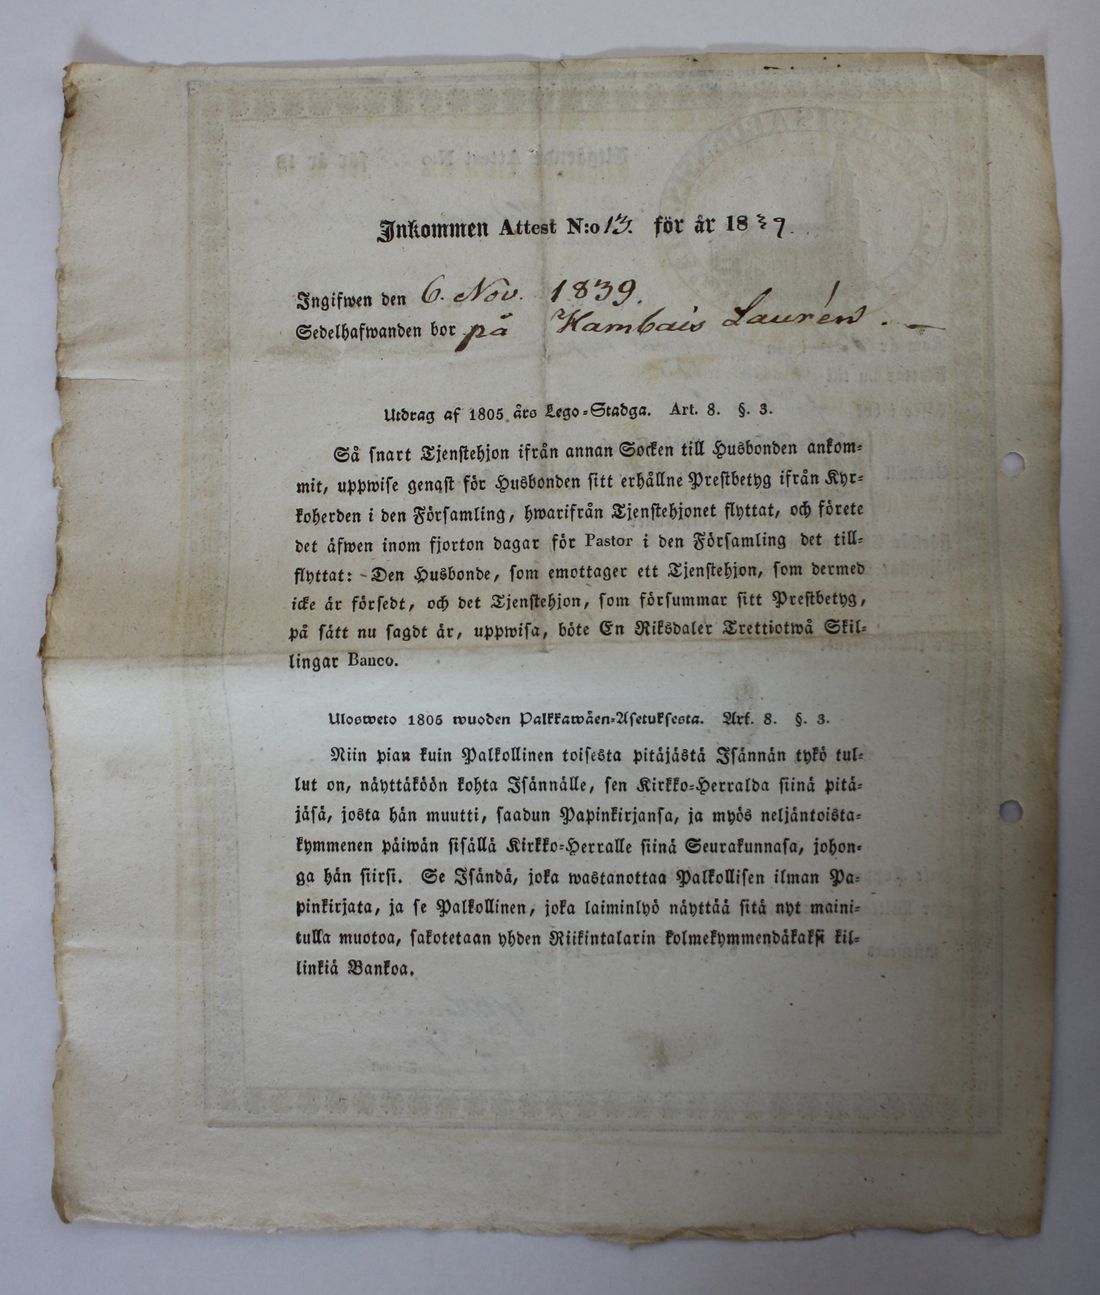 Inkommen Attest N:o 13. för år 1839.
Ingifwen den 6. Nov. 1839.
Sedelhafwanden bor på Kambais Laurén.
Utdrag af 1805 års Lego-Stadga. Art. 8. §. 3.
Så snart Tjenstehjon ifrån annan Socken till Husbonden ankom-
mit, uppwise genast för Husbonden sitt erhållne Prestbetyg ifrån Kyr-
koherden i den Församling, hwarifrån Tjenstehjonet flyttat, och förete
det äfwen inom fjorton dagar för Pastor i den Församling det till-
flyttat: Den Husbonde, som emottager ett Tjenstehjon, som dermed
icke är försedt, och det Tjenstehjon, som försummar sitt Prestbetyg,
på sätt nu sagdt är, uppwisa, böte En Riksdaler Trettiotwå Skil-
lingar Banco.
Ulosweto 1805 wuoden Palkkawäen-Asetuksesta. Art. 8. §. 3.
Niin pian kuin Palkollinen toisesta pitäjästä Isännän tykö tul-
lut on, näyttäköön kohta Isännälle, sen Kirkko-Herralda siinä pitä-
jäsä, josta hän muutti, saadun Papinkirjansa, ja myös neljäntoista-
kymmenen päiwän sisällä Kirkko-Herralle siinä Seurakunnasa, johon-
ga hän siirsi. Se Isändä, joka wastanottaa Palkollisen ilman Pa-
pinkirjata, ja se Palkollinen, joka laiminlyö näyttää sitä nyt maini-
tulla muotoa, sakotetaan yhden Riikintalarin kolmekymmendäkaksi kil-
linkiä Bankoa.